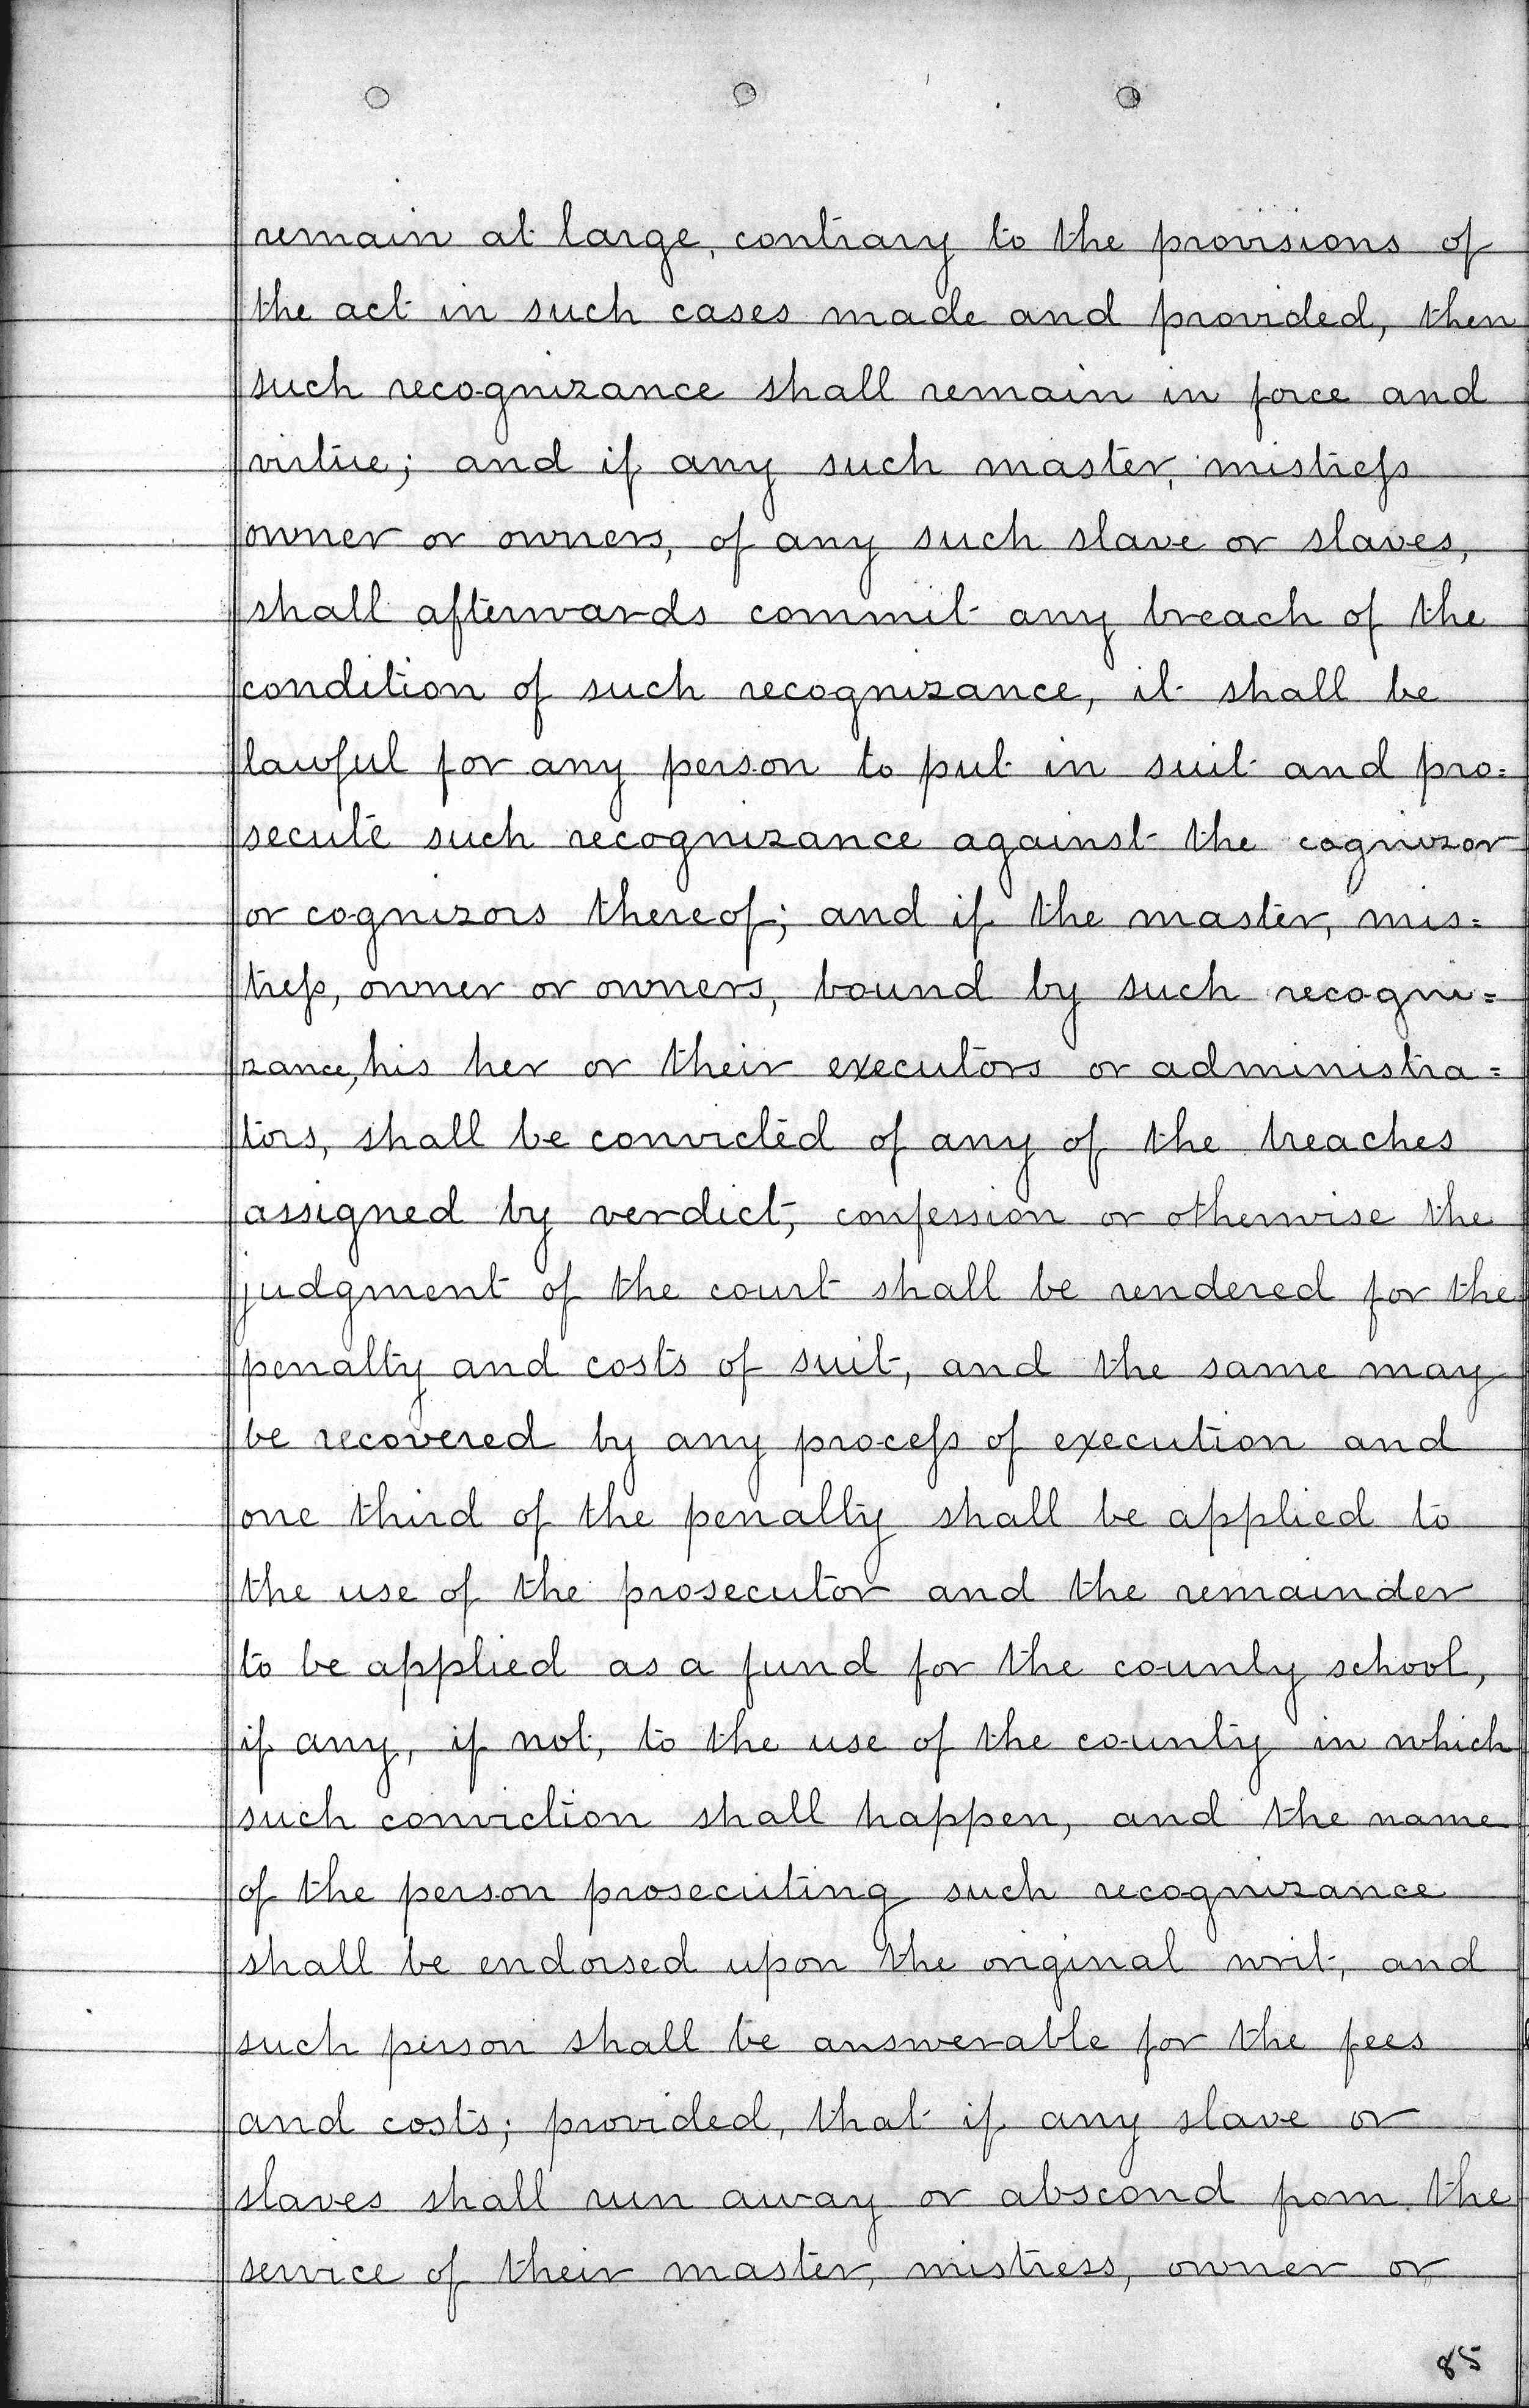 remain at large, contrary to the provisions of
the act in such cases made and provided, then
such recognizance shall remain in force and
virtue; and if any such master, mistreſs
owner or owners, of any such slave or slaves,
shall afterwards commit any breach of the
condition of such recognizance, it shall be
lawful for any person to put in suit and pro=
secute such recognizance against the cognizor
or cognizors thereof; and if the master, mis=
treſs, owner or owners, bound by such recogni=
zance, his her or their executors or administra=
tors, shall be convicted of any of the breaches
assigned by verdict, confession or otherwise the
judgment of the court shall be rendered for the
penalty and costs of suit, and the same may
be recovered by any proceſs of execution and
one third of the penalty shall be applied to
the use of the prosecutor and the remainder
to be applied as a fund for the county school,
if any, if not, to the use of the county in which
such conviction shall happen, and the name
of the person prosecuting such recognizance
shall be endorsed upon the original writ, and
such person shall be answerable for the fees
and costs; provided, that if any slave or
slaves shall run away or abscond from the
service of their master, mistress, owner or
85